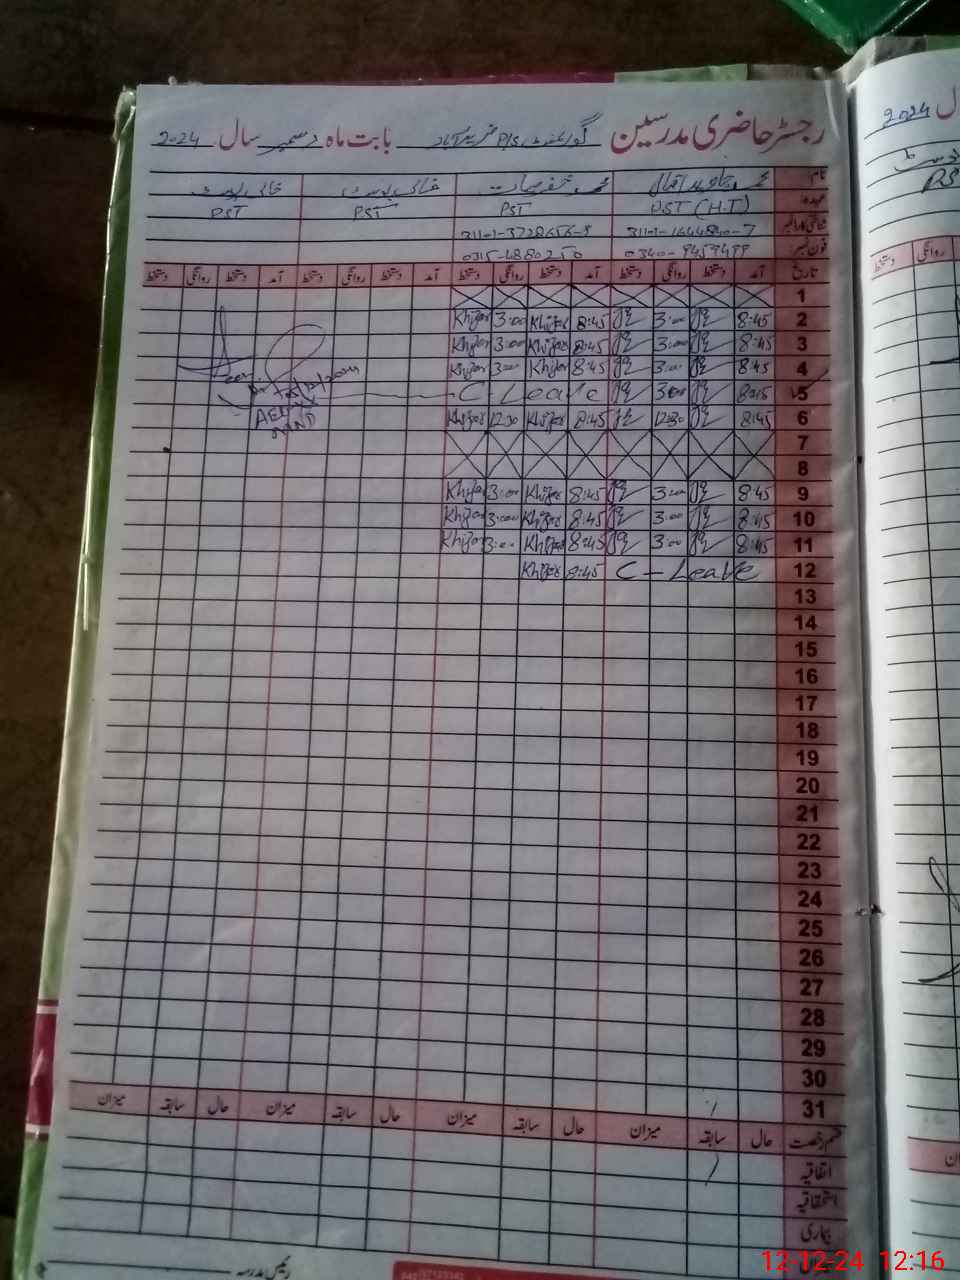 رجسٹر حاضری مدرسین گورنمنٹ P/S فرید آباد بابت ماہ دسمبر سال 2024
نام محمد جاوید اقبال محمد خضر حیات خالی پوسٹ خالی پوسٹ
عہدہ PST (H.T) PST PST PST
شناختی کارڈ نمبر 31101-1644840-7 31101-3728656-5
فون نمبر 0340-9459499 0315-4880250
تاریخ آمد دستخط روانگی دستخط آمد دستخط روانگی دستخط آمد دستخط روانگی دستخط آمد دستخط روانگی دستخط
1
2 8:45 3:00 8:45 Khizar 3:00 Khizar
3 8:45 3:00 8:45 Khizar 3:00 Khizar
4 8:45 3:00 8:45 Khizar 3:00 Khizar
5 8:45 3:00 C-Leave
6 8:45 12:30 8:45 Khizar 12:30 Khizar
7
8
9 8:45 3:00 8:45 Khizar 3:00 Khizar
10 8:45 3:00 8:45 Khizar 3:00 Khizar
11 8:45 3:00 8:45 Khizar 3:00 Khizar
12 C-Leave 8:45 Khizar
13
14
15
16
17
18
19
20
21
22
23
24
25
26
27
28
29
30
31
قسم رخصت حال سابقہ میزان حال سابقہ میزان حال سابقہ میزان حال سابقہ میزان
اتفاقیہ
استحقاقیہ
بیماری
رئیس مدرسہ
2024
12-12-24 12:16